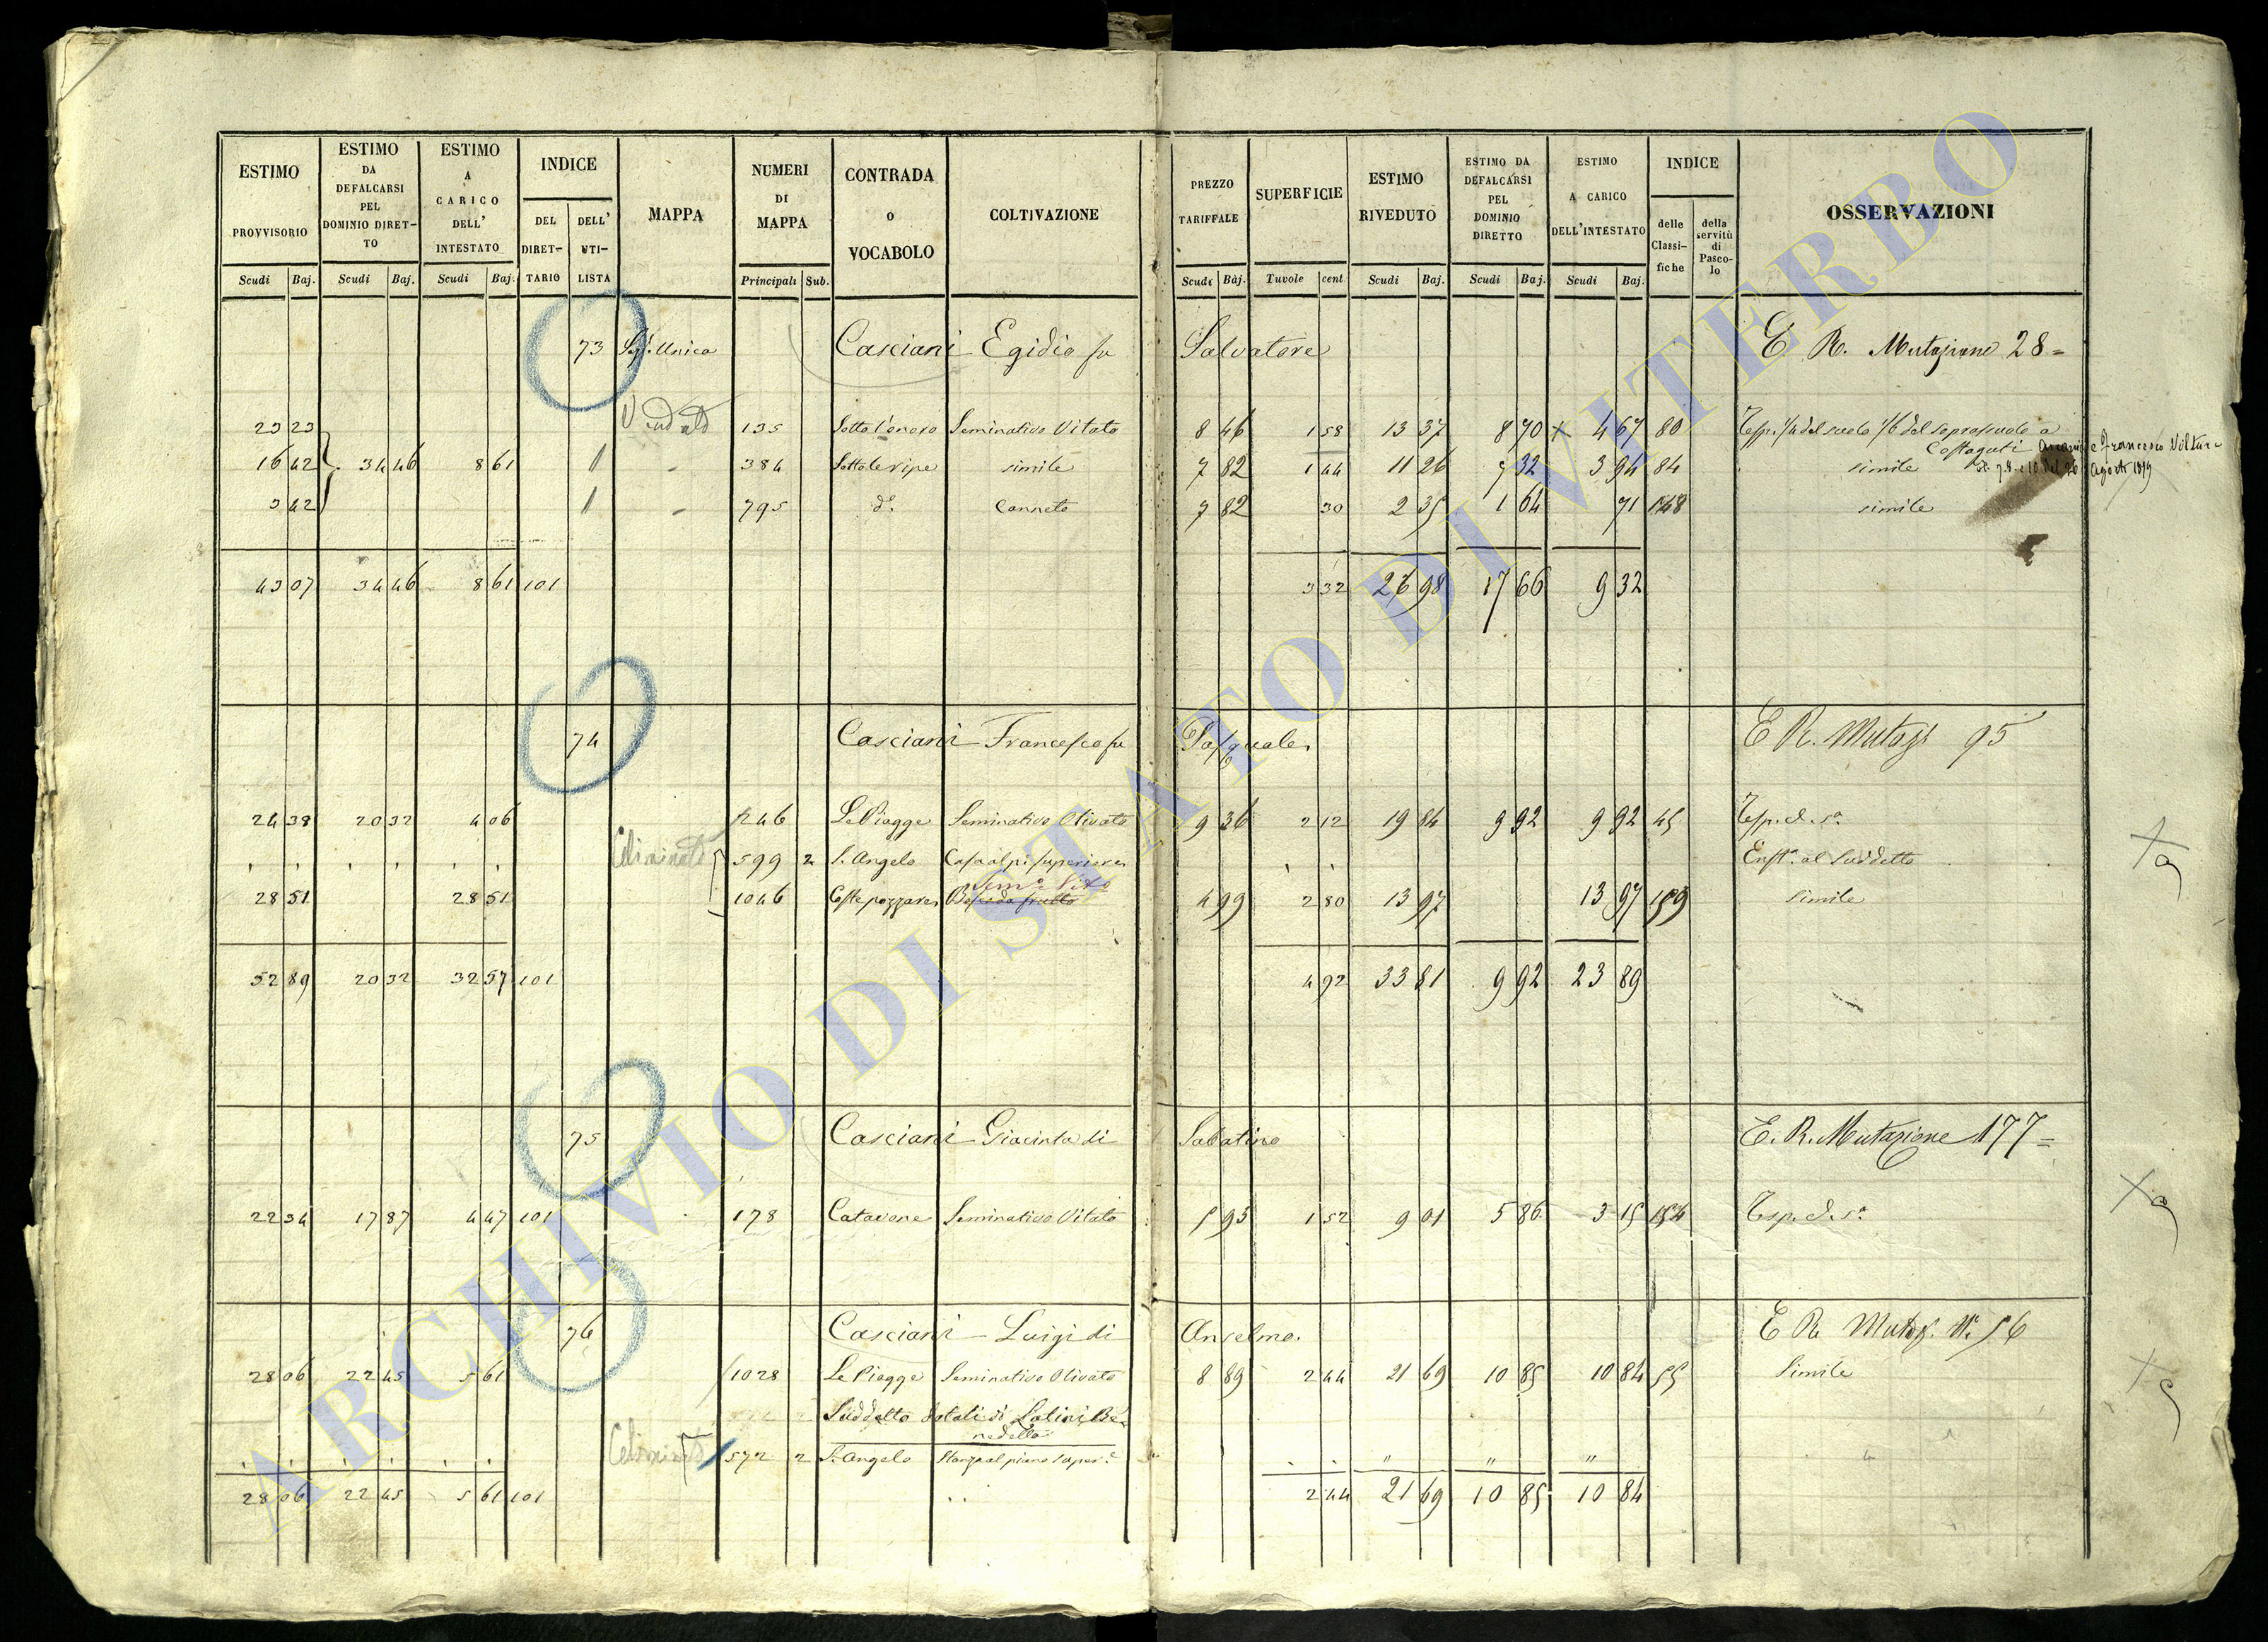 ESTIMO PROVVISORIO Scudi Baj.
ESTIMO DA DEFALCARSI PEL DOMINIO DIRETTO Scudi Baj.
ESTIMO A CARICO DELL' INTESTATO Scudi Baj.
INDICE DEL DIRET-TARIO DELL' UTI-LISTA
MAPPA
NUMERI DI MAPPA Principali Sub.
CONTRADA o VOCABOLO
COLTIVAZIONE
PREZZO TARIFFALE Scudi Baj.
SUPERFICIE Tavole cent
ESTIMO RIVEDUTO Scudi Baj.
ESTIMO DA DEFALCARSI PEL DOMINIO DIRETTO Scudi Baj.
ESTIMO A CARICO DELL'INTESTATO Scudi Baj.
INDICE delle Classi-fiche della servitù di Pasco-lo
OSSERVAZIONI
73 Unica Casciani Egidio fu Salvatore E R. Mutazione 28=
23 23 135 Seminativo Vitato 8 46 1 58 13 37 8 70 x 4 67 80
16 42 34 46 8 61 384 Sotto le ripe simile 7 82 1 44 11 26 7 32 3 94 84 simile
3 42 795 d° Canneto 7 82 30 2 35 1 64 71 148 simile
43 07 34 46 8 61 101 3 32 26 98 17 66 9 32
74 Casciani Francesco fu Pasquale E R. Mutaz 95
24 38 20 32 4 06 246 Le Piagge Seminativo Olivato 9 36 2 12 19 84 9 92 9 92 45
Eliminato 599 2 S. Angelo
28 51 28 51 1046 4 99 2 80 13 97 13 97 159 simile
52 89 20 32 32 57 101 4 92 33 81 9 92 23 89
75 Casciani Giacinta di Sabatino E. R. Mutazione 177=
22 34 17 87 4 47 101 178 Catavone Seminativo Vitato 5 93 1 52 9 01 5 86 3 15 154
76 Casciani Luigi di Anselmo E R. Mutaz. N. 56
28 06 22 45 5 61 1028 Le Piagge Seminativo Olivato 8 89 2 44 21 69 10 85 10 84 55 Simile
Suddetto dotali di Latini Be-
nedetta
Eliminato 572 2 S. Angelo
28 06 22 45 5 61 101 2 44 21 69 10 85 10 84
ARCHIVIO DI STATO DI VITERBO